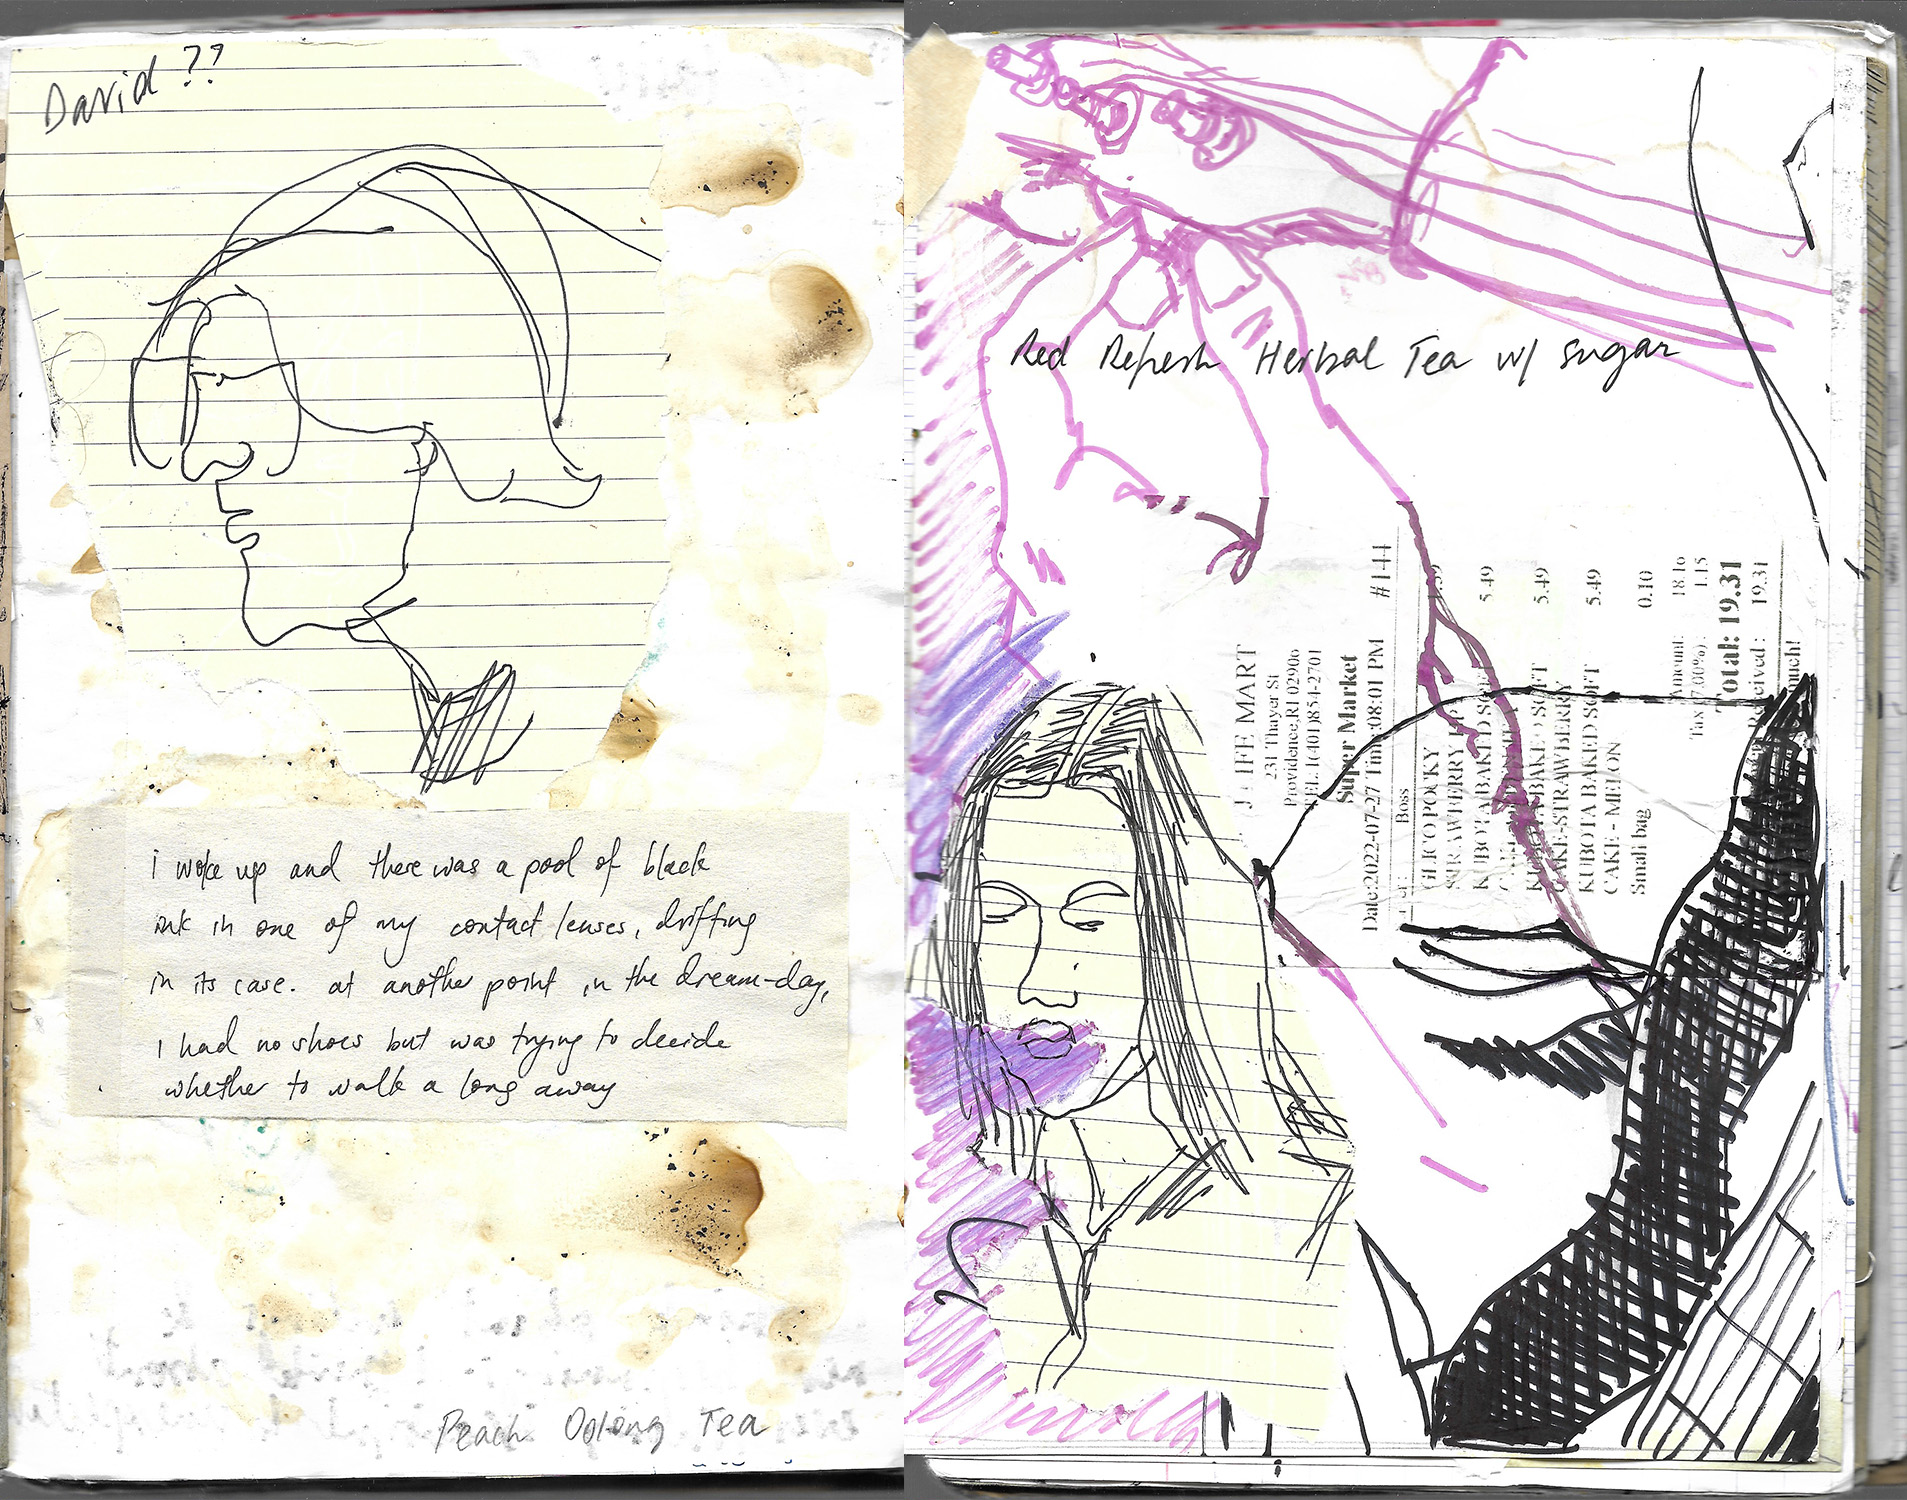 David ??
i woke up and there was a pool of black
ink in one of my contact lenses, drifting
in its case. at another point in the dream-day,
i had no shoes but was trying to decide
whether to walk a long away
Peach Oolong Tea
Red Refresh Herbal Tea w/ sugar
LIFE MART
231 Thayer St
Providence,RI 02906
TEL: 1(401)854-2701
Super Market
Date:2022-07-27 Time:08:01 PM #144
Boss
GLICO POCKY
STRAWBERRY
KUBOTA BAKED SOFT 5.49
KUBOTA BAKED SOFT 5.49
CAKE-STRAWBERRY
KUBOTA BAKED SOFT 5.49
CAKE - MELON
Small bag 0.10
Amount: 18.16
Tax(7.00%): 1.15
Total: 19.31
Received : 19.31
much!